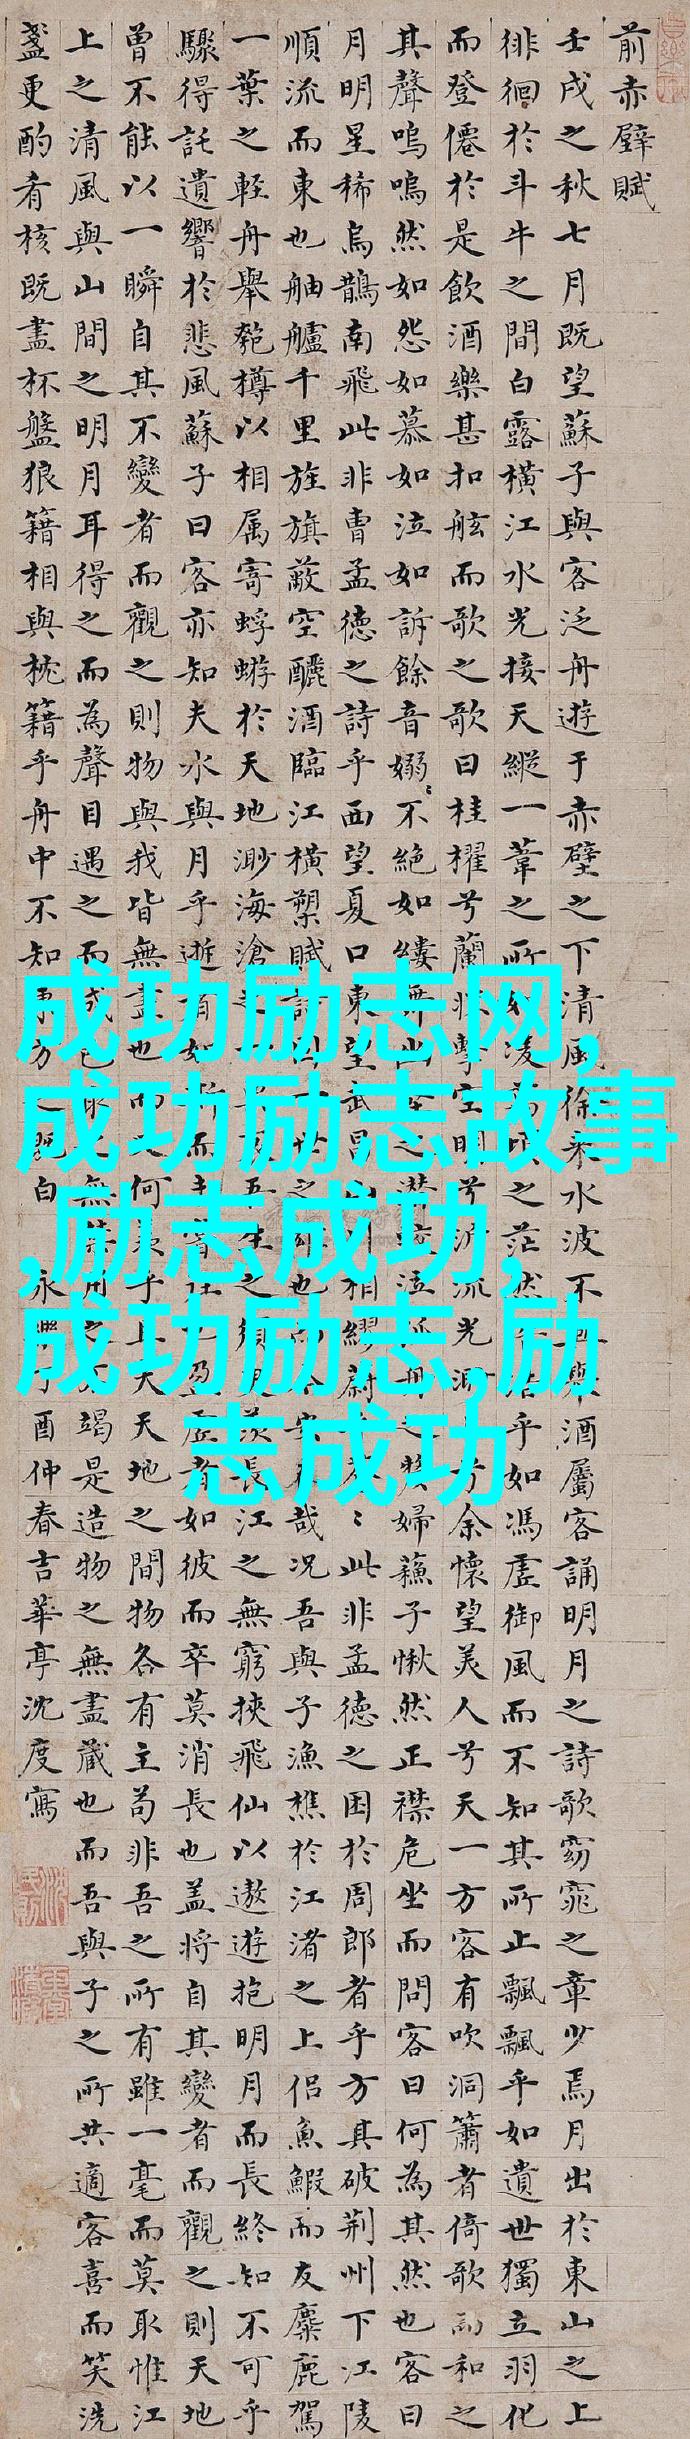 前赤壁賦
壬戌之秋七月既望蘇子與客泛舟遊于赤壁之下清風徐來水波不興舉酒屬客誦明月之詩歌窈窕之章少焉月出於東山之上
徘徊於斗牛之間白露橫江水光接天縱一葦之所如凌萬頃之茫然乎如馮虛御風而不知其所止飄飄乎如遺世獨立羽化
而登僊於是飲酒樂甚扣舷而歌之歌曰桂櫂兮蘭槳擊空明兮泝流光渺兮余懷望美人兮天一方客有吹洞簫者倚歌而和之
其聲嗚嗚然如怨如慕如泣如訴餘音嫋〻不絕如縷舞幽壑之潛蛟泣孤舟之嫠婦蘇子愀然正襟危坐而問客曰何為其然也客曰
月明星稀烏鵲南飛此非曹孟德之詩乎西望夏口東望武昌山川相繆鬱〻此非孟德之困於周郎者乎方其破荊州下江陵
順流而東也舳艫千里旌旗蔽空釃酒臨江橫槊賦詩固一世之雄也而今安在哉況吾與子漁樵於江渚之上侶魚鰕而友麋鹿駕
一葉之輕舟舉匏樽以相属寄蜉蝣於天地渺海滄之一吾生之須羨長江之無窮挾飛仙以遨遊抱明月而長終知不可乎
驟得託遺響於悲風蘇子曰客亦知夫水與月乎逝者如斯而未嘗往也盈虛者如彼而卒莫消長也盖將自其變者而觀之則天地
曾不能以一瞬自其不變者而觀之則物與我皆無盡也而又何羨乎且夫天地之間物各有主苟非吾之所有雖一毫而莫取惟江
上之清風與山間之明月耳得之而為聲目遇之而成色取之無禁用之不竭是造物之無盡藏也而吾與子之所共適客喜而笑洗
盞更酌肴核既盡杯盤狼籍相與枕籍乎舟中不知東方之既白 永樂丁酉仲春吉華亭沈度寫
成功励志网,
成功励志故事
,励志成功,
成功励志,励
志成功